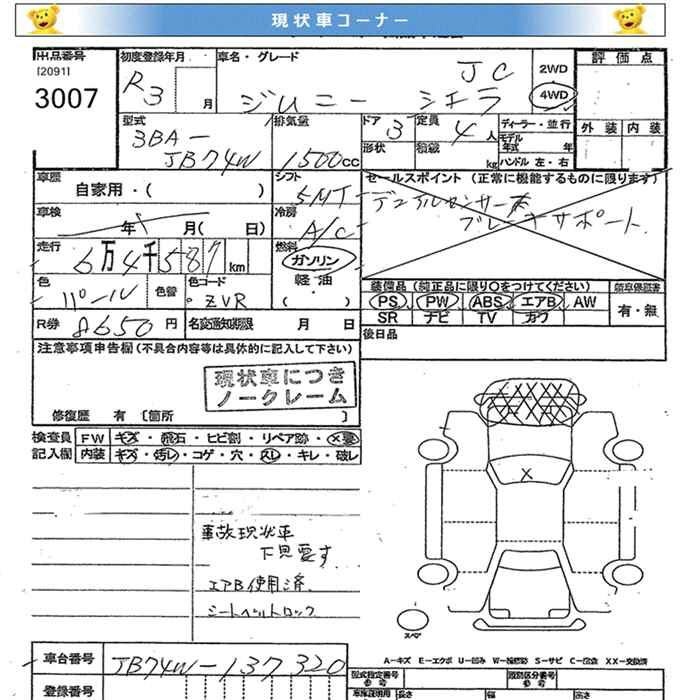 現状車コーナー
出品番号 初度登録年月 車名・グレード 評価点
[2091] R3 月 ジムニー シエラ JC 2WD
3007 4WD
型式 排気量 ドア 3 定員 4人 ディーラー・並行 外装 内装
3BA- 形状 積載 kg モデル年式 年
JB74W 1500cc ハンドル 左・右
車歴 シフト セールスポイント (正常に機能するものに限ります)
自家用・( ) 5MT デュアルセンサー
車検 年 月( 日) 冷房 A/C ブレーキサポート
走行 6万4千587km 燃料 ガソリン
色 パール 色替 色コード ZVR 軽油・( )
装備品 (純正品に限り○をつけてください)
PS PW ABS エアB AW 有・無
SR ナビ TV カワ
R券 8650円 名変通知期限 月 日 後日品
注意事項申告欄 (不具合内容等は具体的に記入して下さい)
現状車につき
ノークレーム
修復歴 有 [箇所 ]
検査員 FW キズ・飛石・ヒビ割・リペア跡・X要
記入欄 内装 キズ・汚レ・コゲ・穴・スレ・キレ・破レ
事故現状車
下見要す
エアB使用済
シートベルトロック
X
スペア
車台番号 JB74W-137320
A-キズ E-エクボ U-凹み W-補修跡 S-サビ C-腐食 XX-交換済
登録番号 型式指定番号 類別区分番号
長さ 幅 高さ